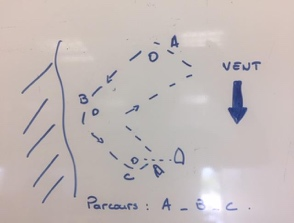 A
VENT
B
C
Parcours : A - B - C.